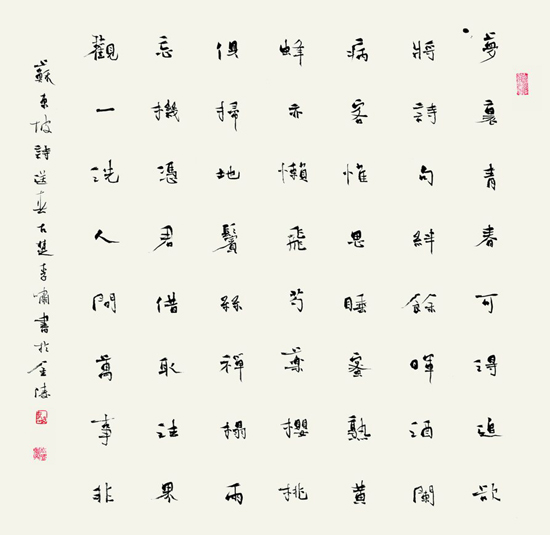 夢裏青春可得追欲
將詩句絆餘暉酒闌
病客惟思睡蜜熟黄
蜂亦懶飛芍藥櫻桃
俱掃地鬢絲禪榻兩
忘機憑君借取法界
觀一洗人間萬事非
蘇東坡詩送春古楚李肅書於金陵